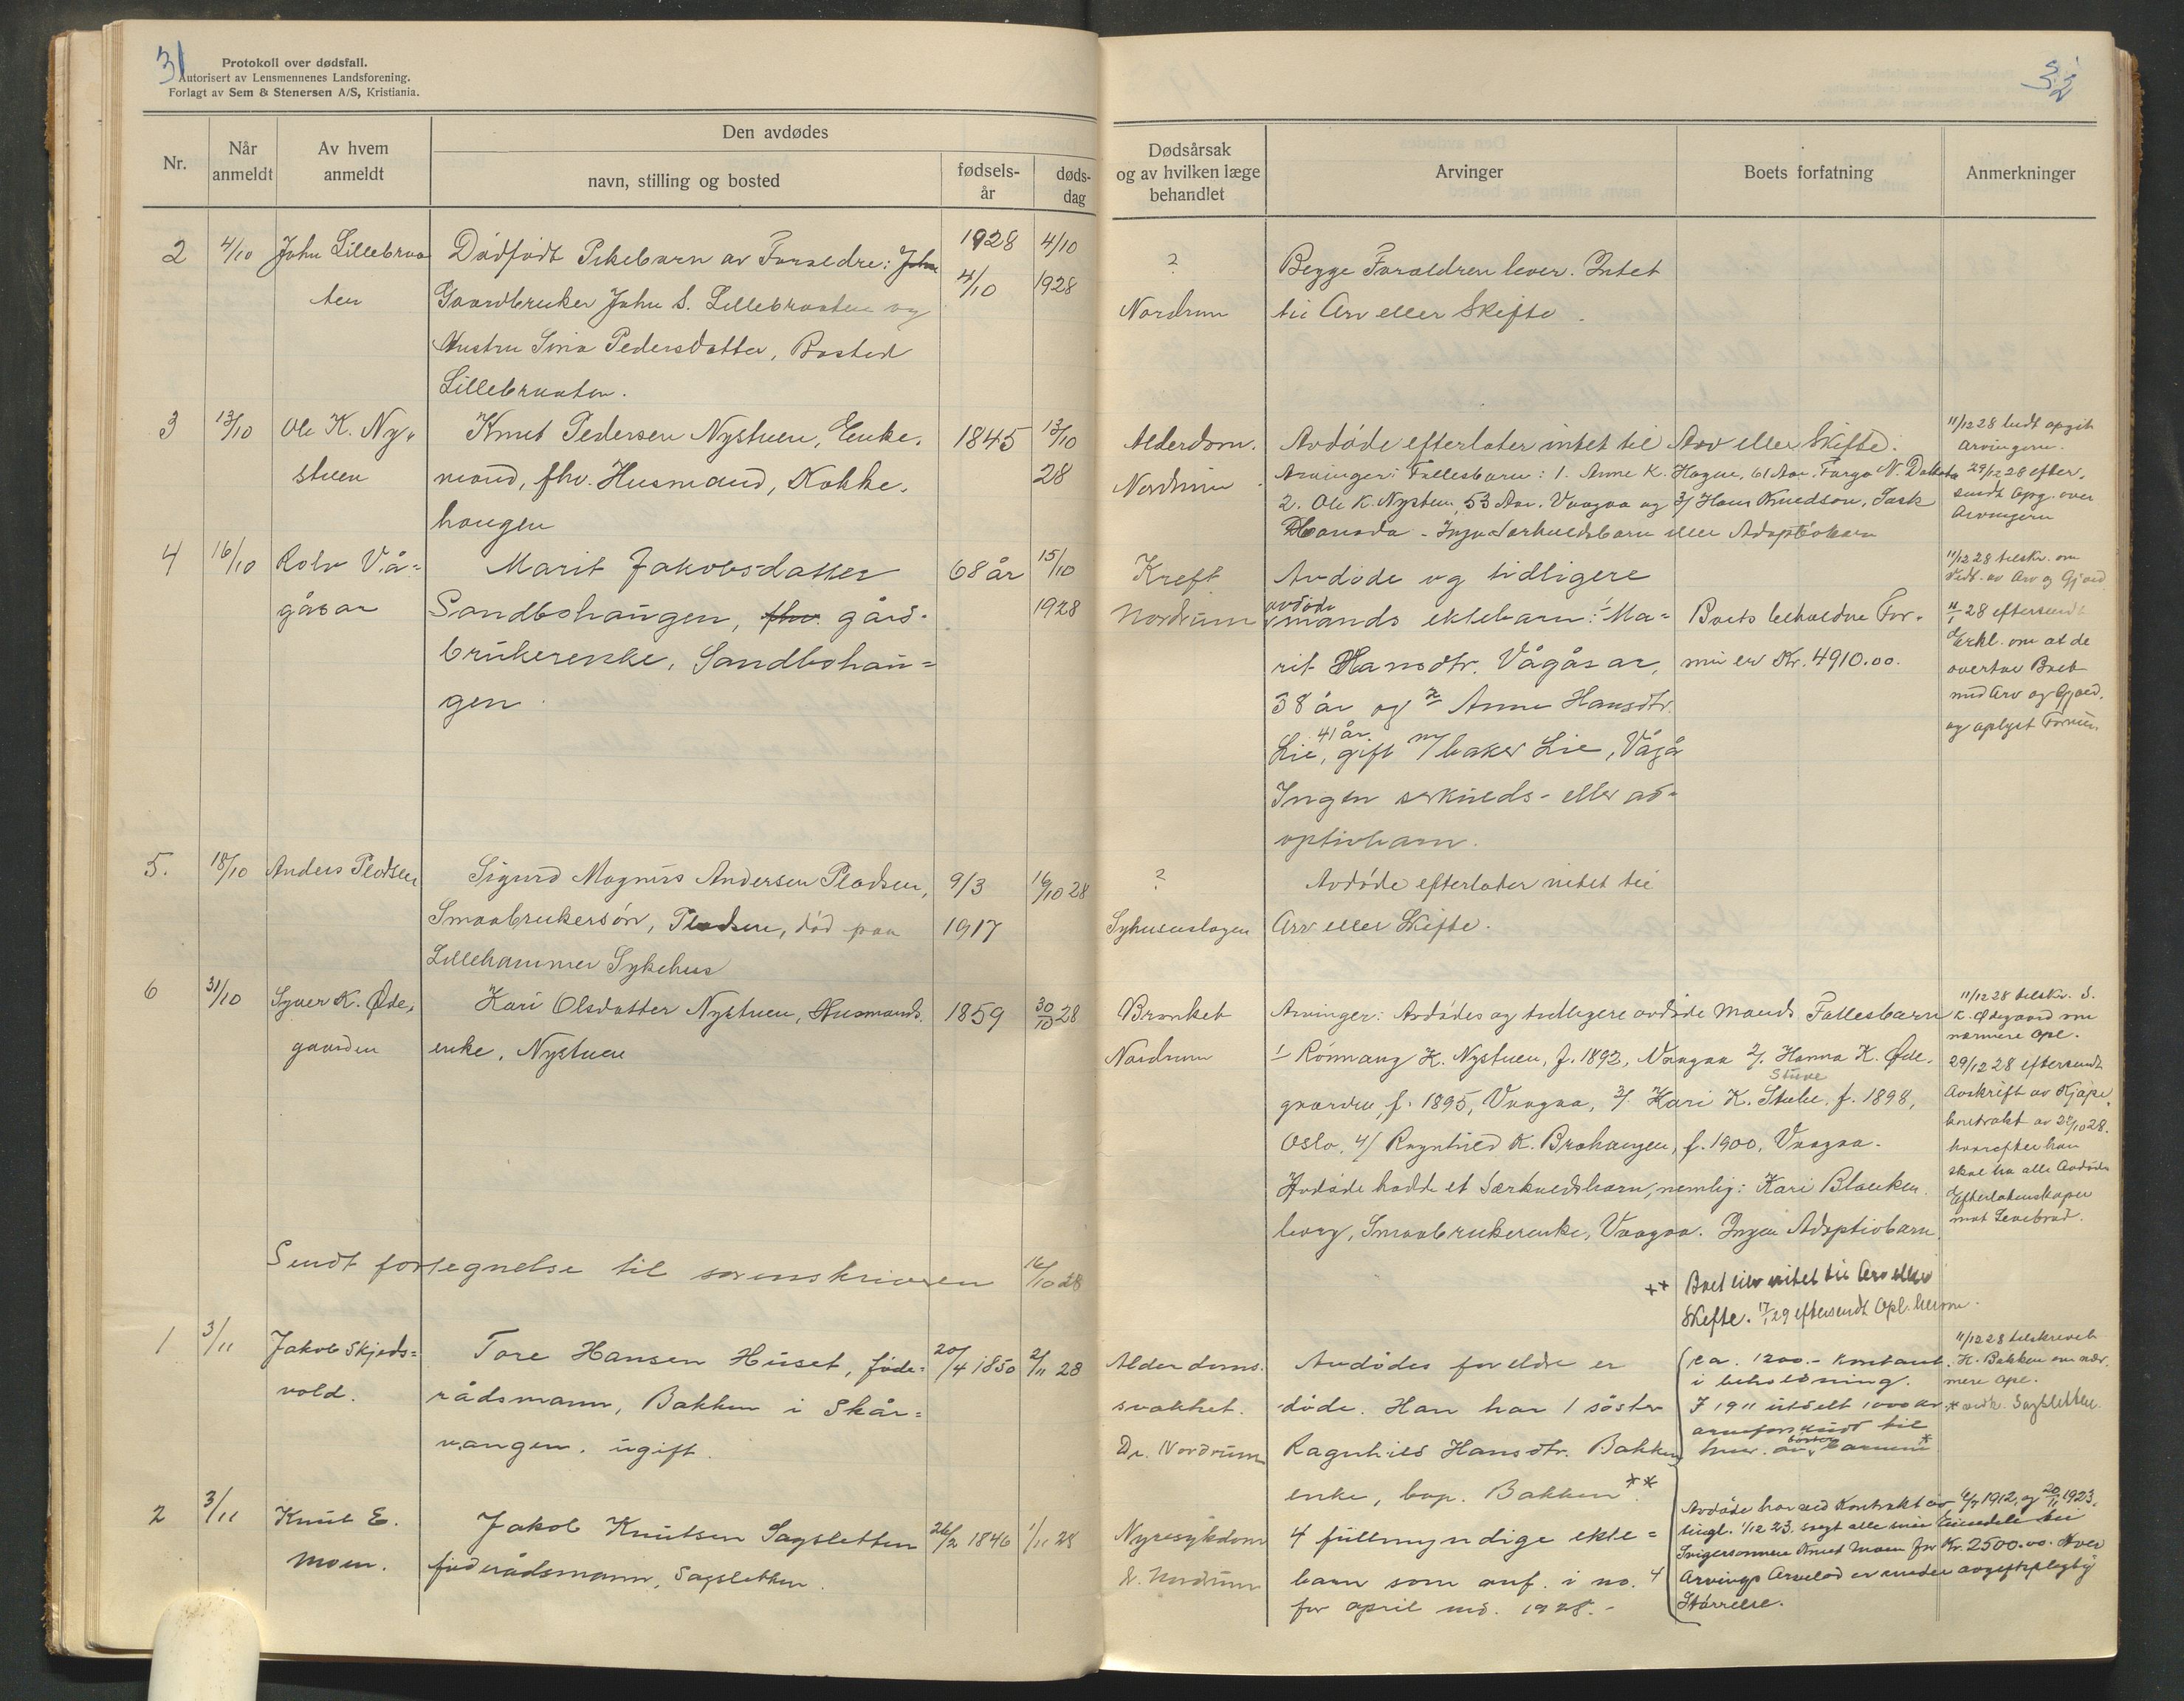 31
Protokoll over dødsfall.
Autorisert av Lensmennenes Landsforening.
Forlagt av Sem & Stenersen A/S, Kristiania.
Nr.
Når anmeldt
Av hvem anmeldt
Den avdødes
navn, stilling og bosted
fødsels-år
døds-dag
2 4/10 John Lillebraa
ten
Dødfødt Pikebarn av Forældre: John
Gaardbruker John S. Lillebraaten og
Hustru Sina Pedersdatter, Bosted
Lillebraaten.
1928
4/10
4/10
1928
3 13/10 Ole K. Ny-
stuen
Knut Pedersen Nystuen, Enke-
mand, fhv. Husmand, Kokke-
haugen
1845
13/10
28
4 16/10 Rolv Vå-
gåsar
Marit Jakobsdatter
Sandbohaugen, fhv. gård-
brukerenke, Sandbohau-
gen
68 år
15/10
1928
5. 18/10 Anders Plodsen
Sigurd Magnus Andersen Plodsen,
Smaabrukersøn, Plodsen, død paa
Lillehammer Sykehus
9/3
1917
16/10 28
6 31/10 Syver K. Øde-
gaarden
Kari Olsdatter Nystuen, Husmands-
enke, Nystuen
1859
30/10 28
Sendt fortegnelse til sorenskriveren 16/10 28
1 3/11 Jakob Skjeds-
vold.
Tore Hansen Huset, føde-
rådsmann, Bakken i Skår-
vangen, ugift.
20/4 1850
2/11 28
2 3/11 Knut E.
Moen.
Jakob Knutsen Sagsletten
føderådsmann, Sagsletten.
26/2 1846
1/11 28
32
Dødsårsak
og av hvilken læge
behandlet
Arvinger
Boets forfatning
Anmerkninger
?
Nordrum
Begge Forældren lever. Intet
til Arv eller Skifte.
Alderdom.
Nordrum
Avdøde efterlater intet til Arv eller Skifte.
Arvinger: Fællesbarn: 1. Anne K. Hagen, 61 Aar, Fargo N. Dakota
2. Ole K. Nystuen, 53 Aar, Vaagaa og 3/ Hans Knudson, Sask
Canada - Ingen Særkuldsbarn eller Adoptivbarn
11/12 28 bedt opgit
Arvingerne.
29/12 28 efter-
sendt Opg. over
Arvingerne
Kreft
Nordrum
Avdøde og tidligere
avdøde
mands ektebarn: 1/ Ma-
rit Hansdtr. Vågåsar,
38 år og 2/ Anne Hansdtr.
41 år
Lie, gift m/ baker Lie, Vågå
Ingen særkulds- eller ad-
optivbarn.
Boets beholdne For-
mue er Kr. 4910.00.
11/12 28 tilskr. om
Vedt. av Arv og Gjæld
28 eftersendt
Erkl. om at de
overtar Boet
med Arv og Gjæld,
og oplyst Formue.
?
Sykehuslægen
Avdøde efterlater intet til
Arv eller Skifte.
Bronket
Nordrum
Arvinger: Avdødes og tidligere avdøde Mands Fællesbarn
1/ Rönnaug K. Nystuen, f. 1892, Vaagaa 2/. Hanna K. Øde-
gaarden, f. 1895, Vaagaa, 3/. Kari K. Stuve, f. 1898,
Stuve
Oslo, 4/ Ragnhild K. Brohaugen, f. 1900, Vaagaa.
Avdøde hadde et Særkuldsbarn, nemlig: Kari Blanken-
borg, Smaabrukerenke, Vaagaa. Ingen Adoptivbarn.
11/12 28 tilskr. S.
K. Ødegaard om
nærmere opl.
29/12 28 eftersendt
Avskrift av Kjøpe-
kontrakt av 22/10 28.
hvorefter han
skal ha alle Avdødes
Efterlatenskaper
mot Levebrød.
++ Boet eier intet til Arv eller
Skifte. 17/1 29 eftersendt Opl. herom.
Alderdoms-
svakhet.
Dr. Nordrum
Avdødes foreldre er
døde. Han har 1 søster
Ragnhild Hansdtr. Bakken
enke, bop. Bakken **
ca. 1200.- kontant
i beholdning.
I 1911 utdelt 1000 kr
arveforskudt til
søsters
hver av barnene *
11/12 28 tilskrevet
H. Bakken om nær-
mere opl.
* vedk. Sagsletten.
Nyresykdom
Dr. Nordrum
4 fullmyndige ekte-
barn som anf. i no. 4
for april md. 1928.-
Avdøde har ved Kontrakt av 6/7 1912, og 20/11 1923,
tingl. 1/12 23. solgt alle sine Eiendele til
Svigersønnen Knut Moen for Kr. 2500.00. Hver
Arvings Arvelod er under avgiftspligtig
Størrelse.